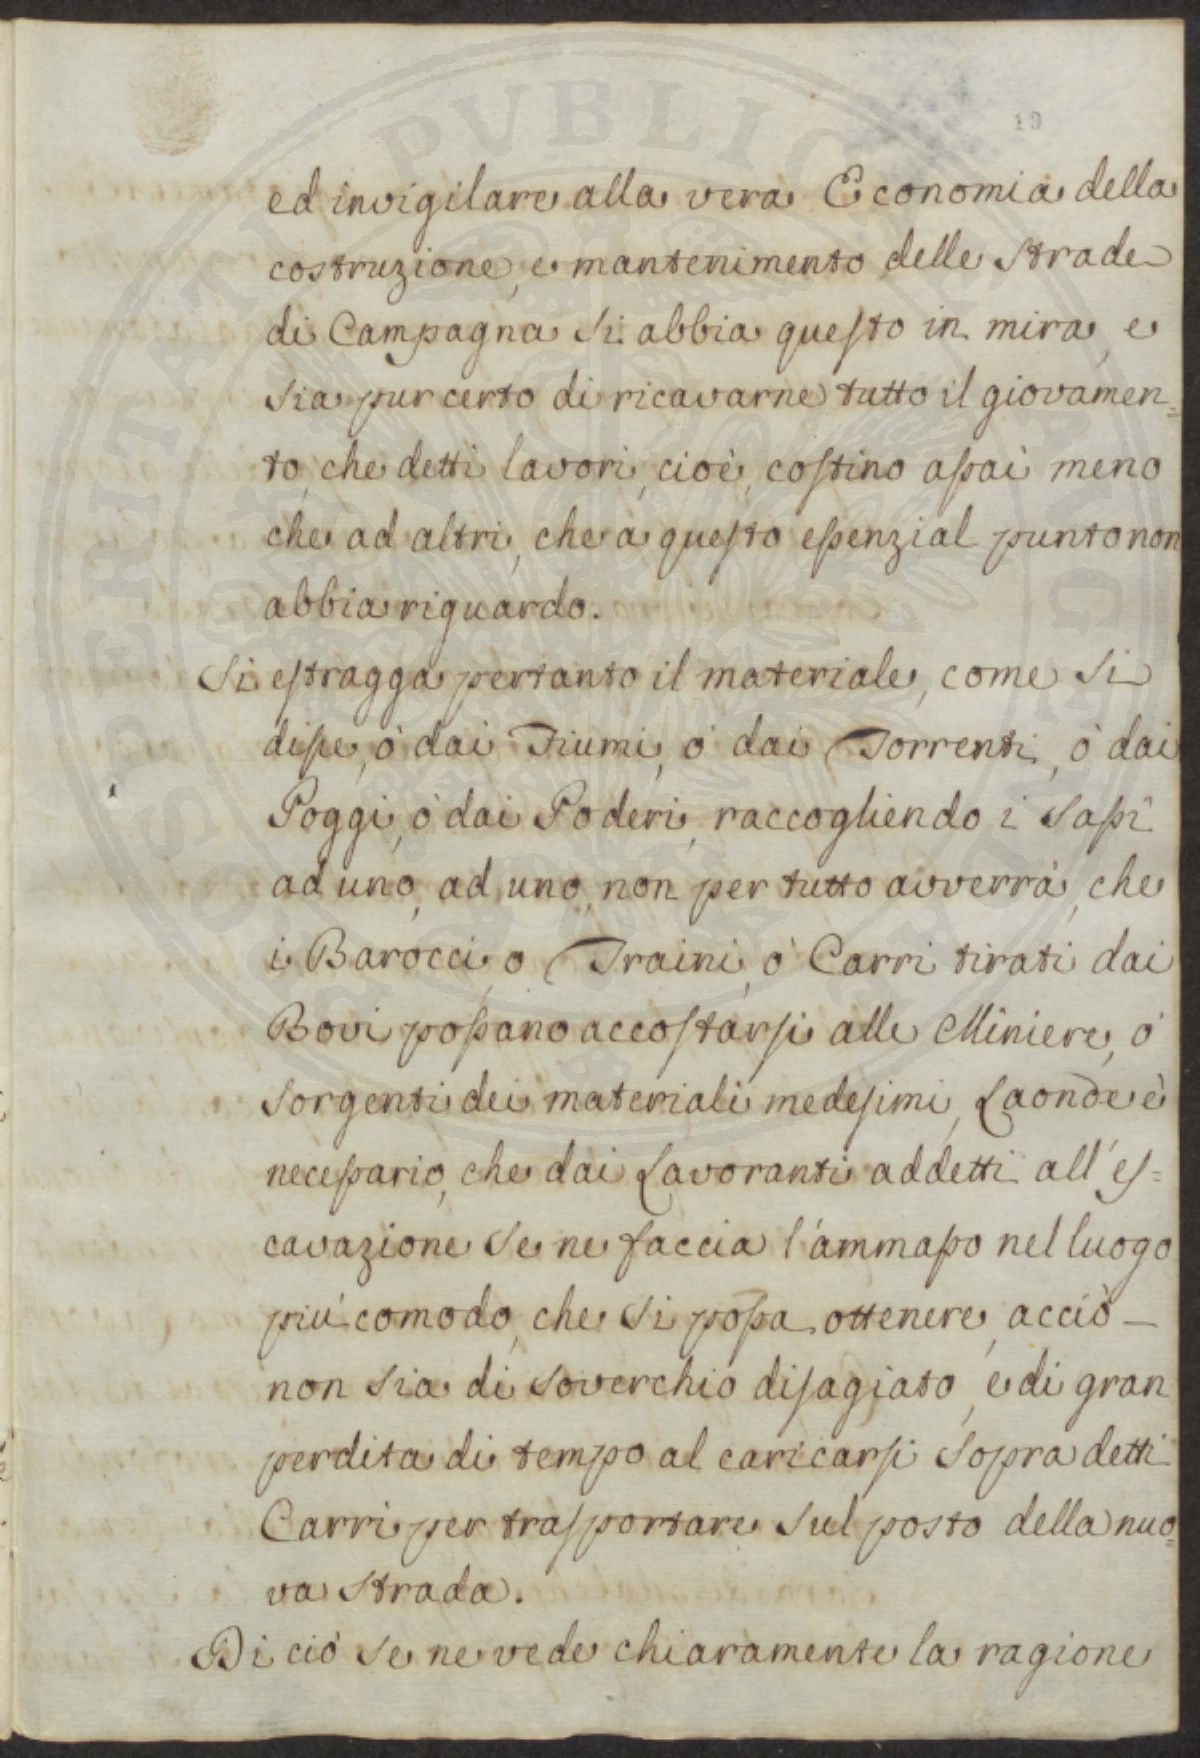 19
ed invigilare alla vera Economia della
costruzione, e mantenimento delle Strade
di Campagna si abbia questo in mira, e
sia pur certo di ricavarne tutto il giovamen=
to, che detti lavori, cioè, costino assai meno
che ad altri, che a questo essenzial punto non
abbia riguardo.
Si estragga pertanto il materiale, come si
disse, ò dai Fiumi, ò dai Torrenti, ò dai
Poggi, ò dai Poderi, raccogliendo i Sassi
ad uno, ad uno, non per tutto avverrà, che
i Barocci, o Traini, ò Carri tirati dai
Bovi possano accostarsi alle Miniere, ò
sorgenti dei materiali medesimi, Laonde è
necessario, che dai Lavoranti addetti all'es=
cavazione se ne faccia l'ammasso nel luogo
più comodo, che si possa ottenere, acciò
non sia di soverchio disagiato, e di gran
perdita di tempo al caricarsi sopra detti
Carri per trasportare sul posto della nuo=
va Strada.
Di ciò se ne vede chiaramente la ragione
PROSPERITATI PUBLICAE AUGENDAE